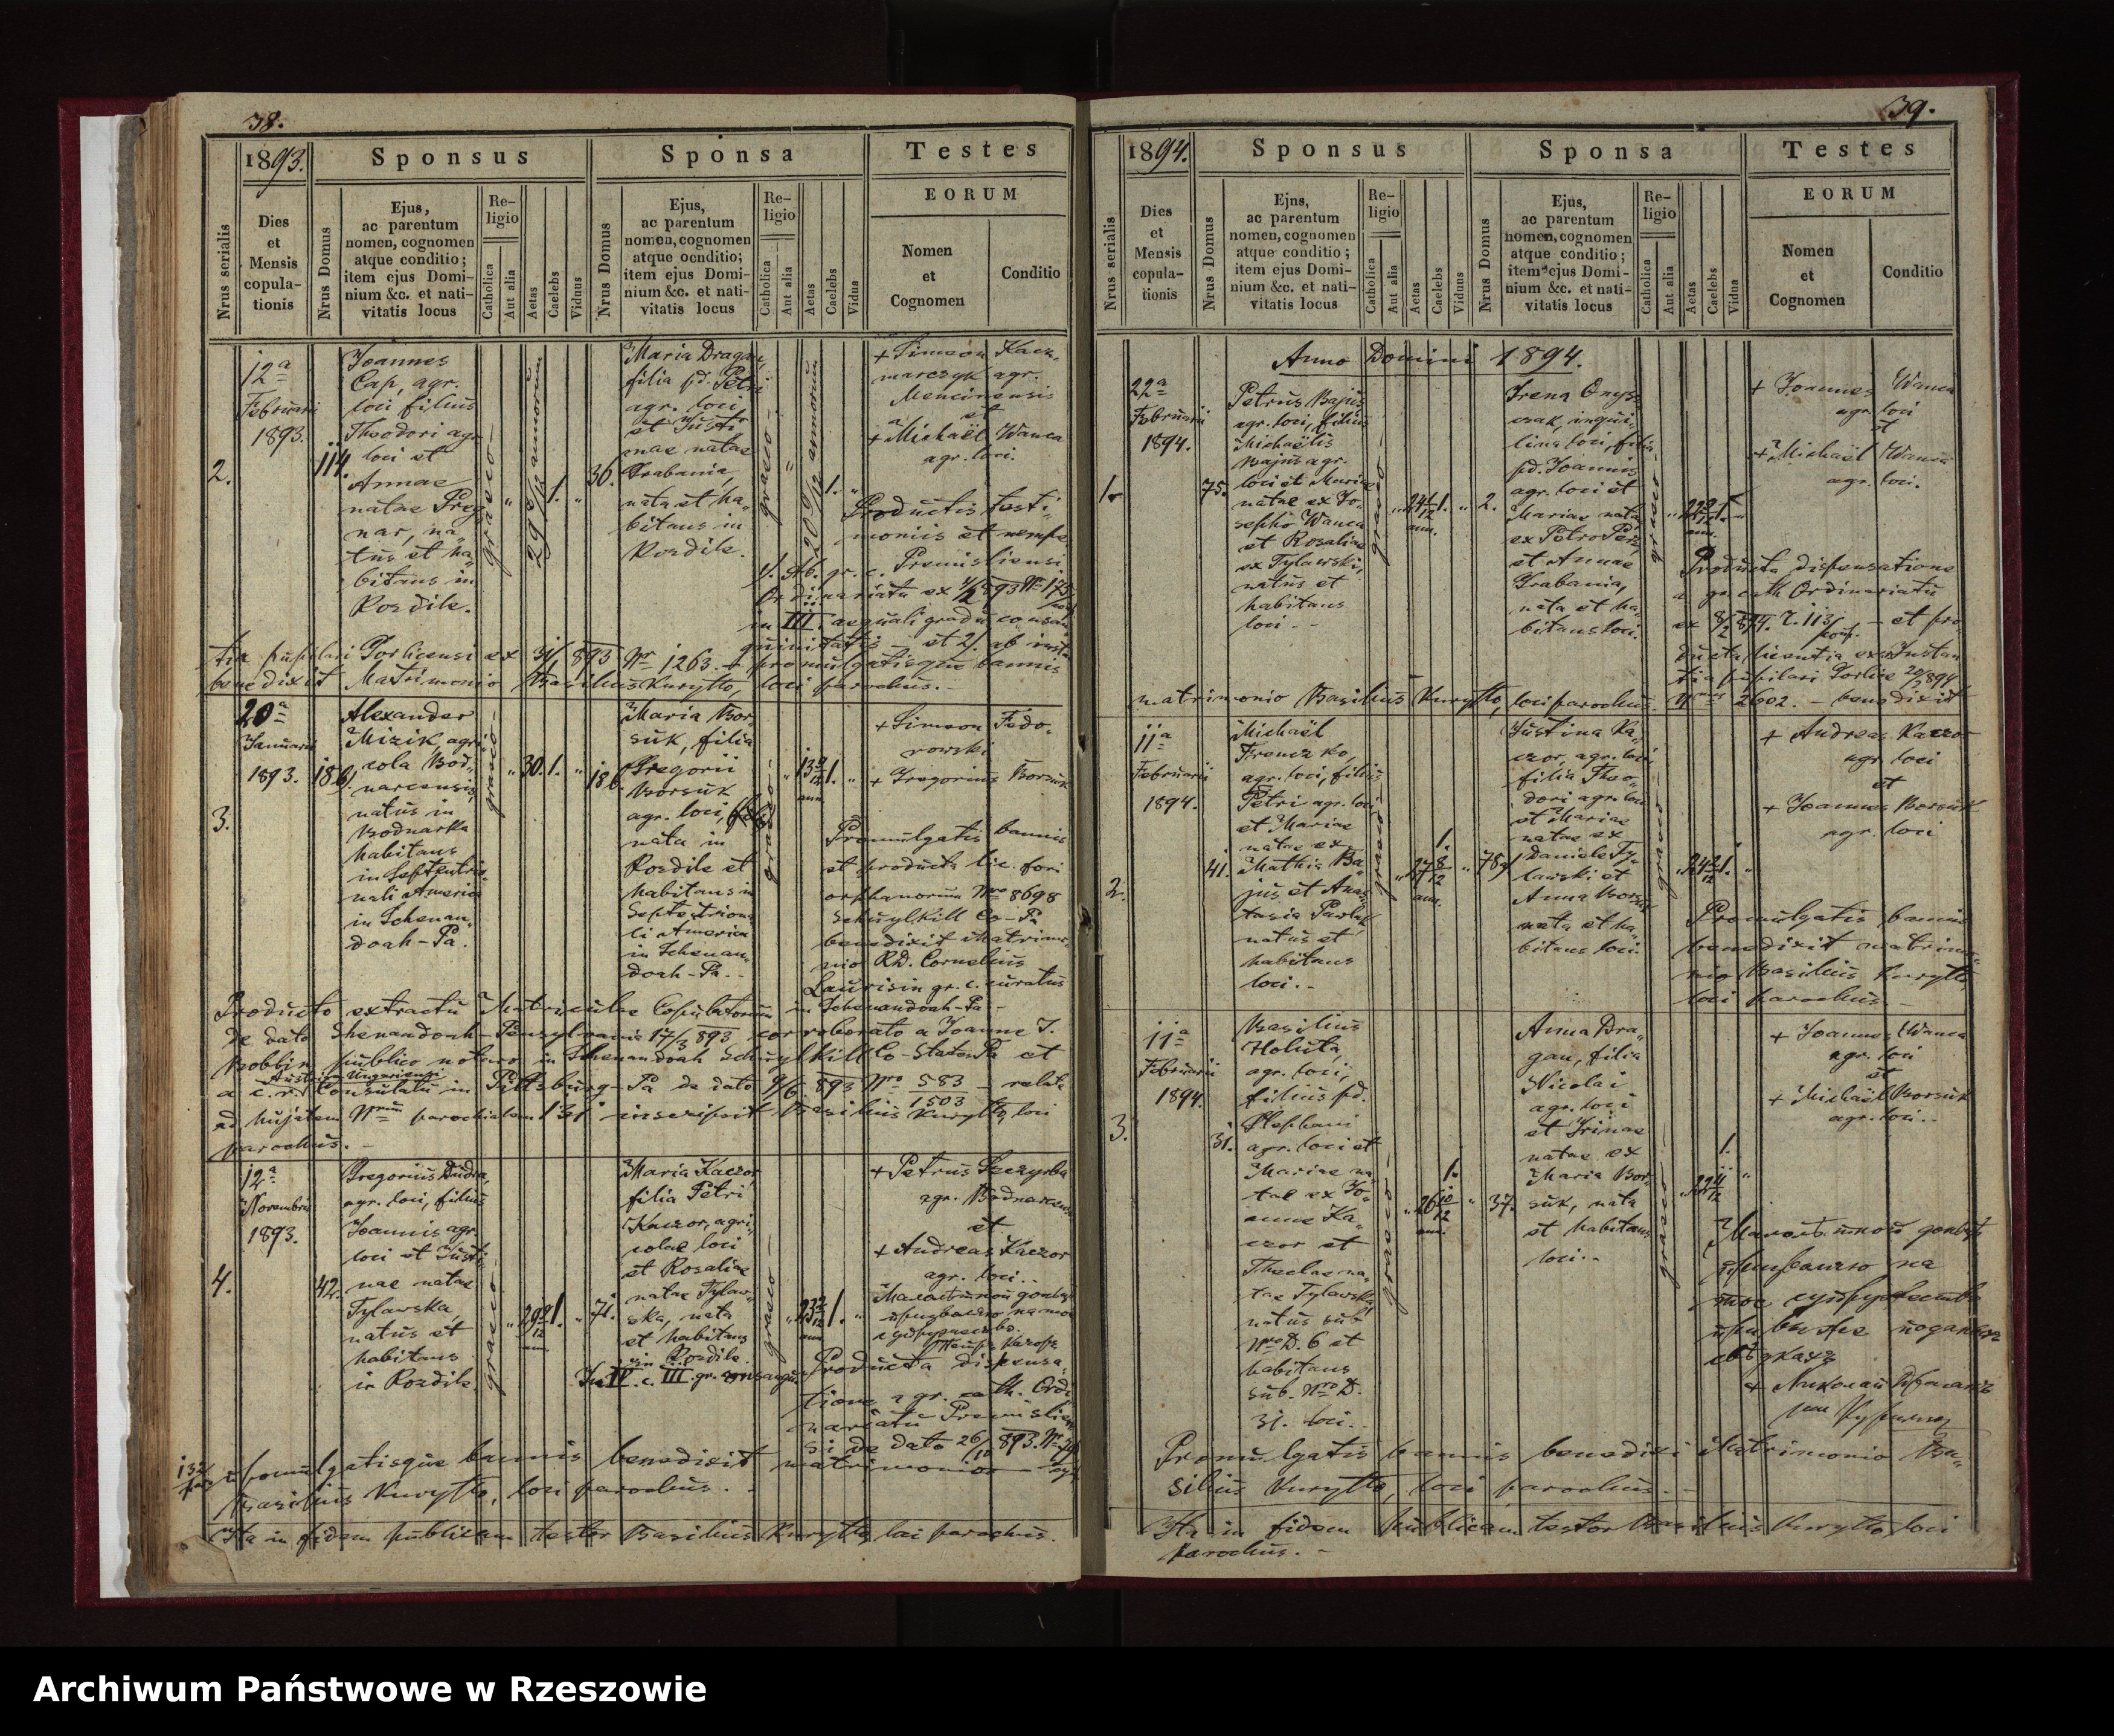 38.
1893.
Sponsus
Sponsa
Testes
EORUM
Nrus serialis
Dies
et
Mensis
copula-
tionis
Nrus Domus
Ejus,
ac parentum
nomen, cognomen
atque conditio;
item ejus Domi-
nium &c. et nati-
vitatis locus
Re-
ligio
Catholica
Aut alia
Aetas
Caelebs
Viduus
Nrus Domus
Ejus,
ac parentum
nomen, cognomen
atque ocnditio;
item ejus Domi-
nium &c. et nati-
vitatis locus
Re-
ligio
Catholica
Aut alia
Aetas
Caelebs
Vidua
Nomen
et
Cognomen
Conditio
2.
12a
Februarii
1893.
114.
Joannes
Cap, agr.
loci filius
Theodori agr.
loci et
Annae
natae Preg
nar, na„
tus et ha„
bitans in
Rozdile.
graeco
1.
36.
Maria Dragan,
filia pd. Petri
agr. loci
et Justi
nae natae
Hrabania,
nata et ha„
bitans in
Rozdile.
graeco
1.
+ Simeon Kacz„
marczyk agr.
Mencinensis
et
+ Michaël Wanca
agr. loci.
Productis testi„
moniis et nempe
1. Ab. gr. c. Premisliensi
Ordinariatu ex
in III. aequali gradu consan
guinitatis – et 2. ab instan
tia pupilari Gorlicensi ex 31/1 893 Nr 1263. + promulgatisque bannis
benedixit Matrimonio Basilius Kuryłło, loci parochus. –
3.
20a
Januarii
1893.
186.
Alexander
Mizik, agri„
cola Bod„
narcensis,
natus in
Bodnarka
habitans
in Septentrio„
nali America
in Schenan„
doah – Pa.
graeco
30. 1.
186.
Maria Bor„
suk, filia
Gregorii
Borsuk
agr. loci,
nata in
Rozdile et
habitans in
Septetriona
li America
in Schenan„
doah – Pa. –
graeco
+ Simeon Fedo„
rowski
+ Gregorius Borsuk
Promulgatis bannis
et producta lic. fori
orphanorum Nro 8698
Schuylkill Co – Pa
benedixit Matrimo„
nio Rd. Cornelius
Laurisin gr. c. curatus
in Schenandoah – Pa –
Producto extractu Matriculae Copulatorum
de dato Shenandoah – Pensylvania 17/3 893 corroborato a Joanne J.
Bobbin publico notaro in Schenandoah Schuylkill Co – States Pa et
a c. r. Austr. Ungariensi Consulatu in Pittsburg – Pa de dato 9/6 893 Nro 583/1503 – relate
ad hujatem Nrum parochialem 131 inscripsit Basilius Kuryłło, loci
parochus. –
4.
12a
Novembris
1893.
42.
Gregorius Dudra,
agr. loci, filius
Joannis agr.
loci et Justi„
nae natae
Tylawska,
natus et
habitans
in Rozdile.
graeco
1.
71.
Maria Kaczor,
filia Petri
Kaczor, agri„
colae loci
et Rosaliae
natae Tylaw„
ska, nata
et habitans
in Rozdile.
graeco
1.
+ Petrus
agr. Bodnarcensis
et
+ Andreas Kaczor
agr. loci. .
In IV. c. III. gr. consangu.
Producta dispensa„
tione a gr. cath. Ordi
nariatu Premislien
si de dato 26/10 893. Nr
promulgatisque bannis benedixit matrimonio
Basilius Kuryłło, loci parochus. –
Ita in fidem publicam testor Basilius Kuryłło, loci parochus.
39.
1894.
Sponsus
Sponsa
Testes
EORUM
Nrus serialis
Dies
et
Mensis
copula-
tionis
Nrus Domus
Ejns,
ac parentum
nomen, cognomen
atque conditio;
item ejus Domi-
nium &c. et nati-
vitatis locus
Re-
ligio
Catholica
Aut alia
Aetas
Caelebs
Viduus
Nrus Domus
Ejus,
ac parentum
nomen, cognomen
atque conditio;
item ejus Domi-
nium &c. et nati-
vitatis locus
Re-
ligio
Catholica
Aut alia
Aetas
Caelebs
Vidua
Nomen
et
Cognomen
Conditio
Anno Domini 1894.
1.
22a
Februarii
1894.
75.
Petrus Bajus
agr. loci, filius
Michaëlis
Bajus agr.
loci et Mariae
natae ex Jo„
sepho Wanca
et Rosaliae
ex Tylawski,
natus et
habitans
loci. –
graeco
1.
2.
Irena Onys„
czak, inqui„
lina loci, filia
pd. Joannis
agr. loci et
Mariae nata
ex Petro
et Annae
Hrabania,
nata et ha„
bitans loci.
graeco
+ Joannes Wanca
agr. loci
et
+ Michaël Wanca
agr. loci.
Producta dispensatione
a gr. cath Ordinariatu
ex – et pro
ducta licentia ex Instan
tia pupilari Gorlice
Nrus 2602. – benedixit
matrimonio Basilius Kuryłło, loci parochus.
2.
11a
Februarii
1894.
41.
Michaël
Frenczko,
agr. loci, filius
Petri agr. loci
et Mariae
natae ex
Mathia Ba„
jus et Anas„
tasia Pawlak
natus et
habitans
loci. –
graeco
1.
78.
Justina Ka„
czor, agr. loci
filia Theo„
dori agr. loci
et Mariae
natae ex
Daniele Ty„
lawski et
Anna Borsuk
nata et ha„
bitans loci.
graeco
+ Andreas Kaczor
agr. loci
et
+ Joannes Borsuk
agr. loci
Promulgatis bannis
benedixit matrimo„
nio Basilius Kuryłło
loci parochus –
3.
11a
Februarii
1894.
31.
Basilius
Holuta,
agr. loci,
filius pd.
Stephani
agr. loci et
Mariae na
tae ex Jo„
anne Ka„
czor et
Theclae na„
tae Tylawska,
natus sub
Nro D. 6 et
habitans
sub. Nro D.
31. loci.
graeco
1.
37.
Anna Dra„
gan, filia
Nicolai
agr. loci
et Irinae
natae ex
Maria Bor„
suk, nata
et habitans
loci. .
graeco
1.
+ Joannes Wanca
agr. loci
et
+ Michaël Borsuk
agr. loci. .
Promulgatis bannis benedixi Matrimonio Ba„
silius Kuryłło, loci parochus. –
Ita in fidem publicam testor Basilius Kuryłło loci
parochus. –
Archiwum Państwowe w Rzeszowie